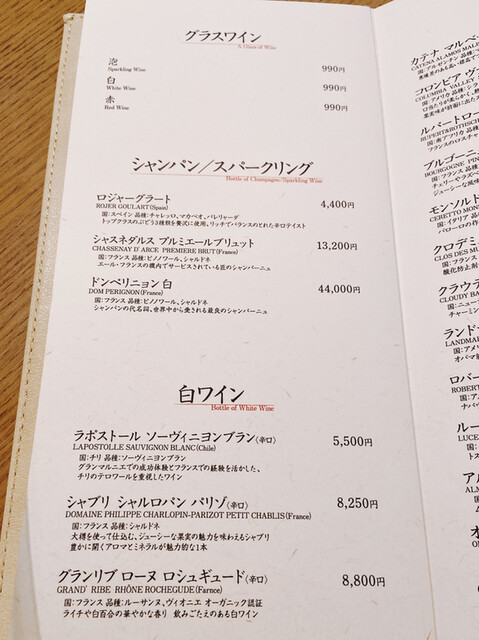 グラスワイン
A Glass of Wine
泡 990円
Sparkling Wine
白 990円
White Wine
赤 990円
Red Wine
シャンパン／スパークリング
Bottle of Champagne/Sparkling Wine
ロジャーグラート 4,400円
ROJER GOULART(Spain)
国：スペイン 品種：チャレッロ、マカベオ、パレリャーダ
トップクラスのぶどう3種類を贅沢に使用、リッチでバランスのとれた辛口テイスト
シャスネダルス プルミエールブリュット 13,200円
CHASSENAY D' ARCE PREMIERE BRUT(France)
国：フランス 品種：ピノノワール、シャルドネ
エール・フランスの機内でサービスされている匠のシャンパーニュ
ドンペリニョン 白 44,000円
DOM PERIGNON(France)
国：フランス 品種：ピノノワール、シャルドネ
シャンパンの代名詞、世界中から愛される最良のシャンパーニュ
白ワイン
Bottle of White Wine
ラポストール ソーヴィニヨンブラン(辛口) 5,500円
LAPOSTOLLE SAUVIGNON BLANC(Chile)
国：チリ 品種：ソーヴィニヨンブラン
グランマルニエでの成功体験とフランスでの経験を活かした、
チリのテロワールを重視したワイン
シャブリ シャルロパン パリゾ(辛口) 8,250円
DOMAINE PHILIPPE CHARLOPIN-PARIZOT PETIT CHABLIS(France)
国：フランス 品種：シャルドネ
大樽を使って仕込む、ジューシーな果実の魅力を味わえるシャブリ
豊かに開くアロマとミネラルが魅力的な1本
グランリブ ローヌ ロシュギュード(辛口) 8,800円
GRAND' RIBE RHÔNE ROCHEGUDE(Farnce)
国：フランス 品種：ルーサンヌ、ヴィオニエ オーガニック認証
ライチや白百合の華やかな香り 飲みごたえのある白ワイン
カテナ マルベ
CATENA ALAMOS MALB
国：アルゼンチン 品種：
コロンビア ヴ
COLUMBIA VALLEY
国：アメリカ 品種：
ルパートロー
RUPERT&ROTHSCH
国：南アフリカ 品種
ブルゴーニ
BOURGOGNE PIN
国：フランス
モンソルド
CERETTO MON
クロデミ
CLOS DES MU
国：フランス
酸化防止剤
クラウデ
CLOUDY BA
国：ニュー
チャーミン
ランド
LANDMAR
国：アメリ
ロバー
ROBERT
国：ア
ナパ
ルー
LUCE
国：
アル
ALM
国
オ